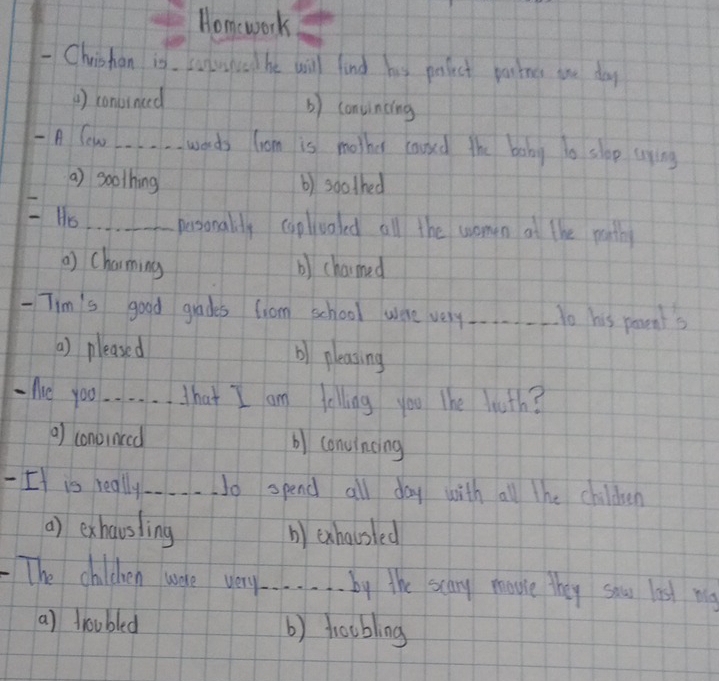 Homework
- Christian is. convinced he will find his perfect partner one day
a) convinced b) convincing
- A few ...... words from is mother caused the baby to stop crying
a) soothing b) soothed
- His ........ personality captivated all the women at the party
a) Charming b) charmed
- Tim's good grades from school were very ........ to his parent's
a) pleased b) pleasing
- Are you ...... that I am telling you the truth?
a) convinced b) convincing
- It is really ...... to spend all day with all the children
a) exhausting b) exhausted
- The children were very ........ by the scary movie they saw last nig
a) troubled b) troubling